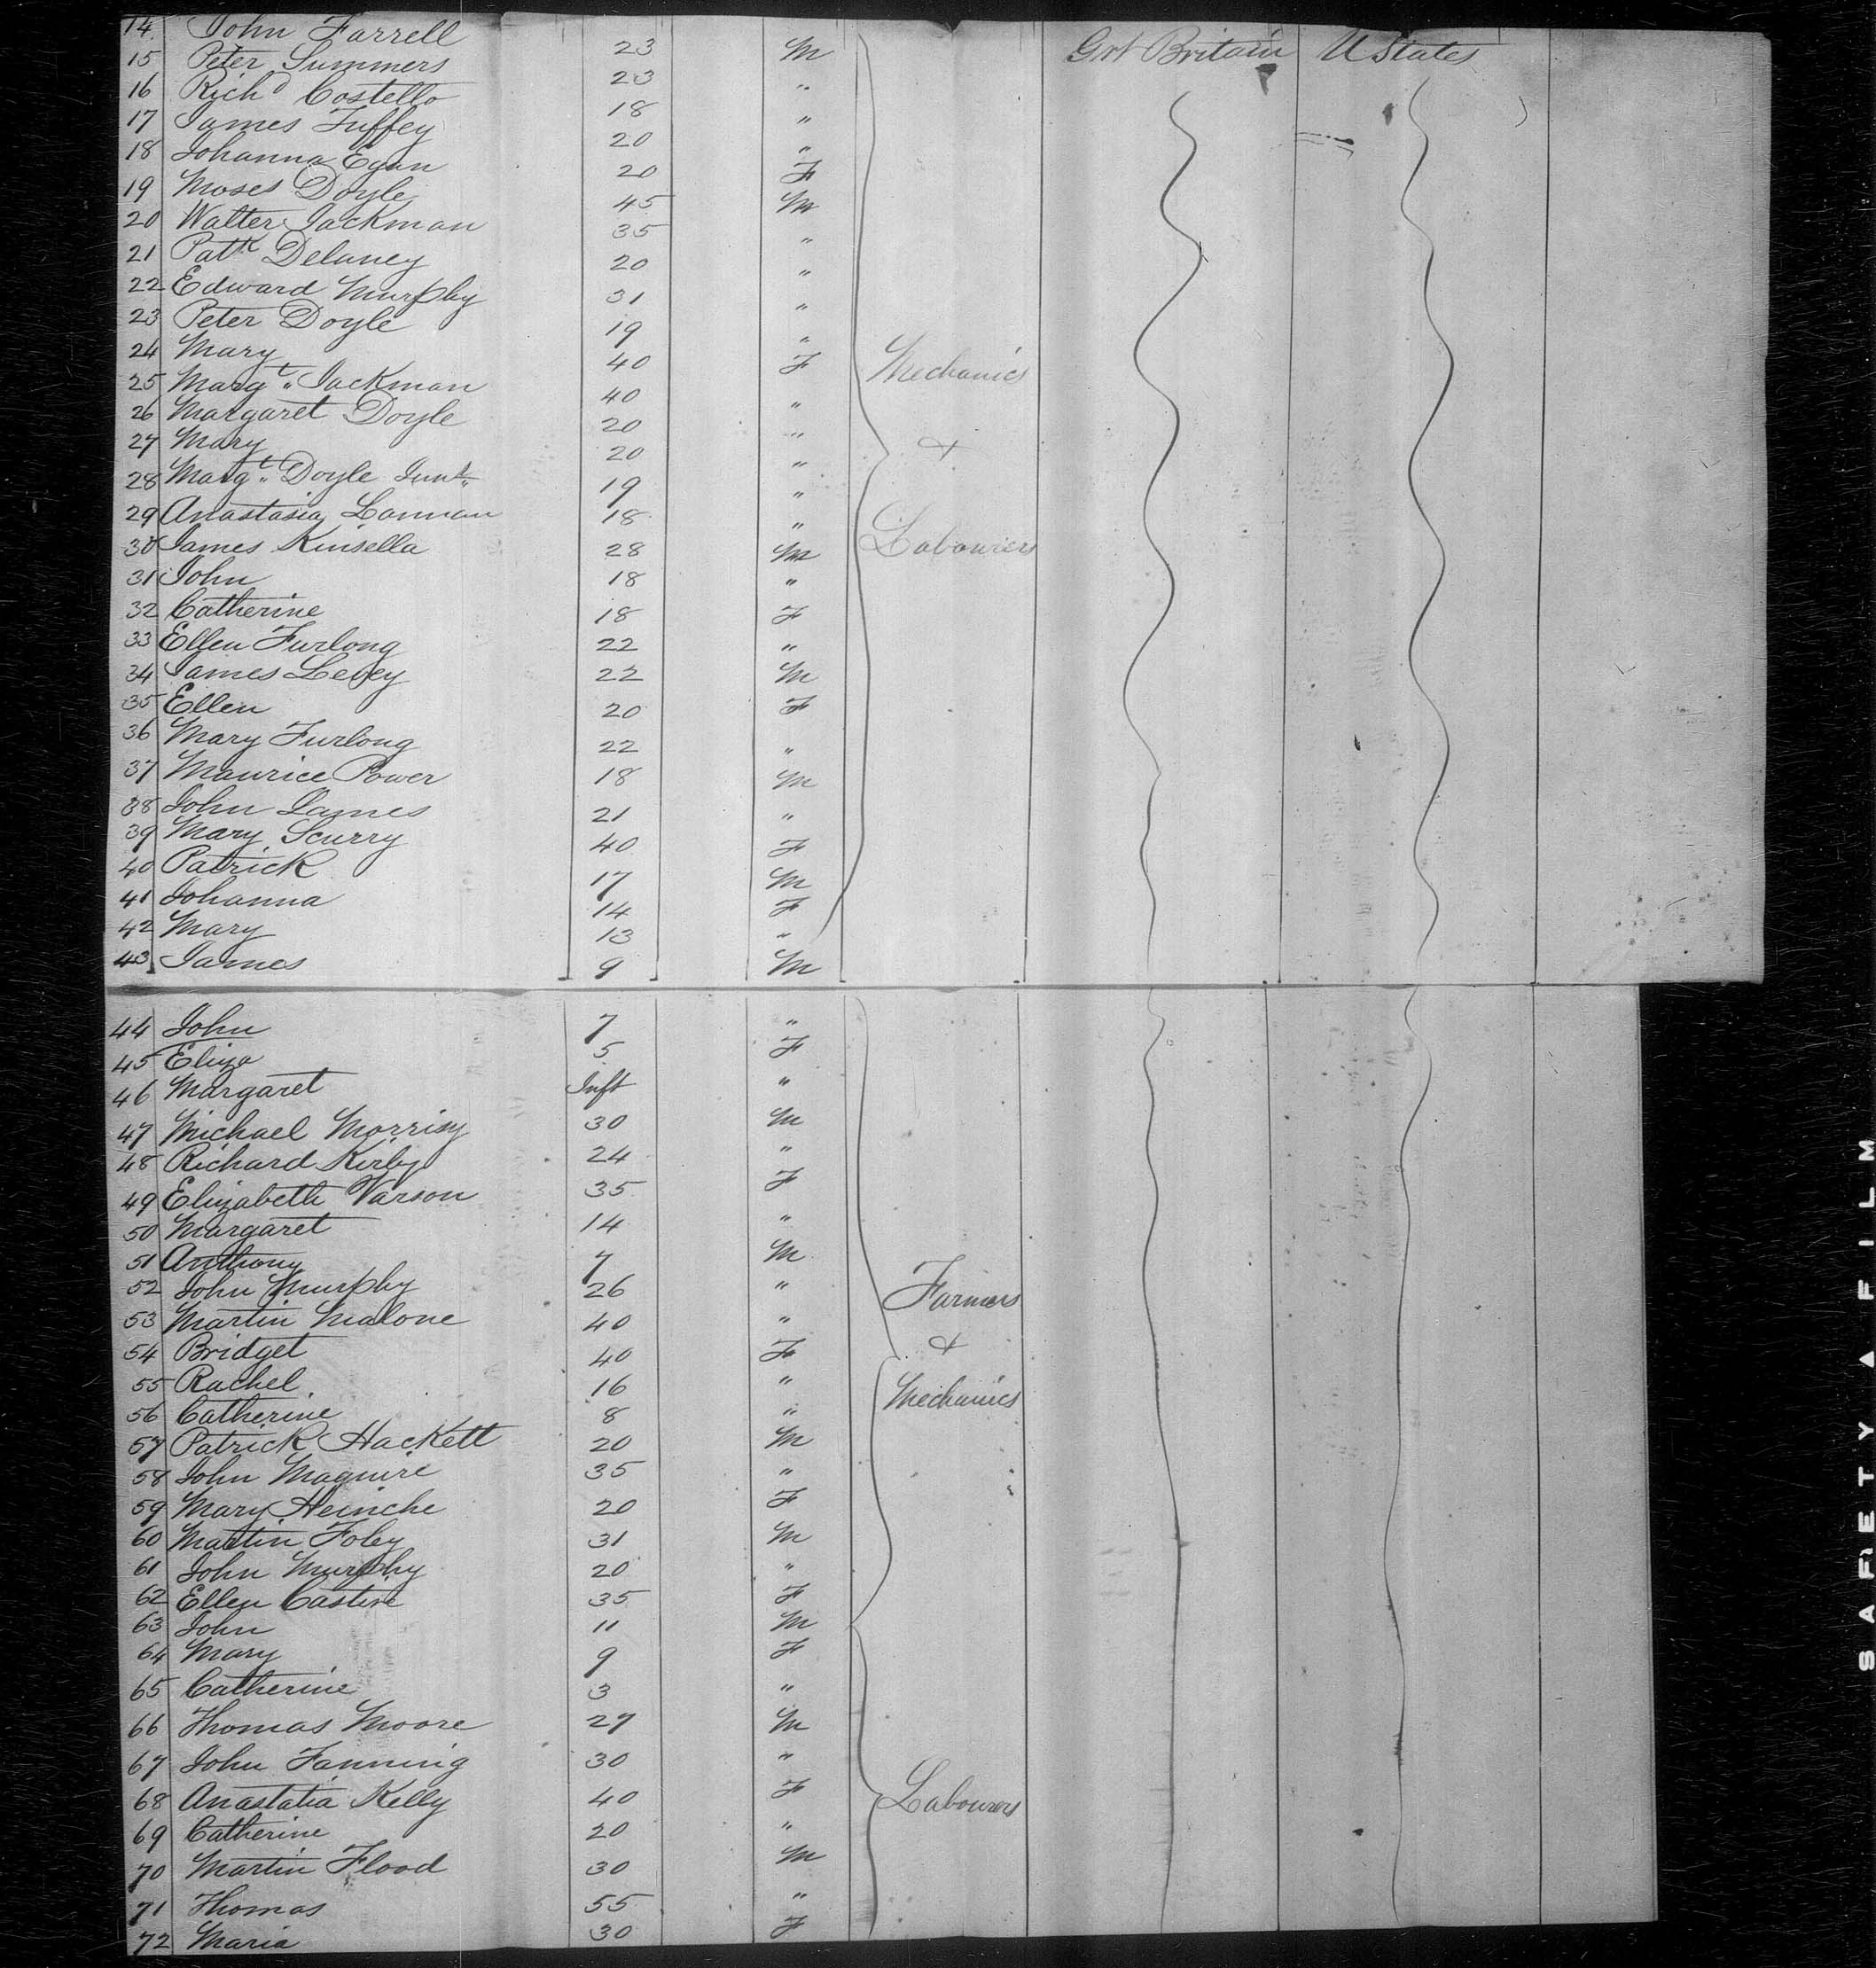 14 John Farrell 23 M Grt Britain U States
15 Peter Summers 23 "
16 Richd Costello 18 "
17 James Tuffey 20 "
18 Johanna Egan 20 F
19 Moses Doyle 45 M
20 Walter Jackman 35 "
21 Patk Delaney 20 "
22 Edward Murphy 31 "
23 Peter Doyle 19 "
24 Mary 40 F Mechanics
25 Margt. Jackman 40 "
26 Margaret Doyle 20 "
27 Mary 20 " +
28 Margt. Doyle Junr. 19 "
29 Anastasia Lannan 18 "
30 James Kinsella 28 M Labourers
31 John 18 "
32 Catherine 18 F
33 Ellen Furlong 22 "
34 James Levey 22 M
35 Ellen 20 F
36 Mary Furlong 22 "
37 Maurice Power 18 M
38 John James 21 "
39 Mary Scurry 40 F
40 Patrick 17 M
41 Johanna 14 F
42 Mary 13 "
43 James 9 M
44 John 7 "
45 Eliza 5 F
46 Margaret Inft "
47 Michael Morrisy 30 M
48 Richard Kirby 24 "
49 Elizabeth Varson 35 F
50 Margaret 14 "
51 Anthony 7 M
52 John Murphy 26 " Farmers
53 Martin Malone 40 "
54 Bridget 40 F +
55 Rachel 16 " Mechanics
56 Catherine 8 "
57 Patrick Hackett 20 M
58 John Maguire 35 "
59 Mary Heinche 20 F
60 Martin Foley 31 M
61 John Murphy 20 "
62 Ellen Castine 35 F
63 John 11 M
64 Mary 9 F
65 Catherine 3 "
66 Thomas Moore 27 M
67 John Fanning 30 "
68 Anastatia Kelly 40 F Labourers
69 Catherine 20 "
70 Martin Flood 30 M
71 Thomas 55 "
72 Maria 30 F
SAFETY A FILM